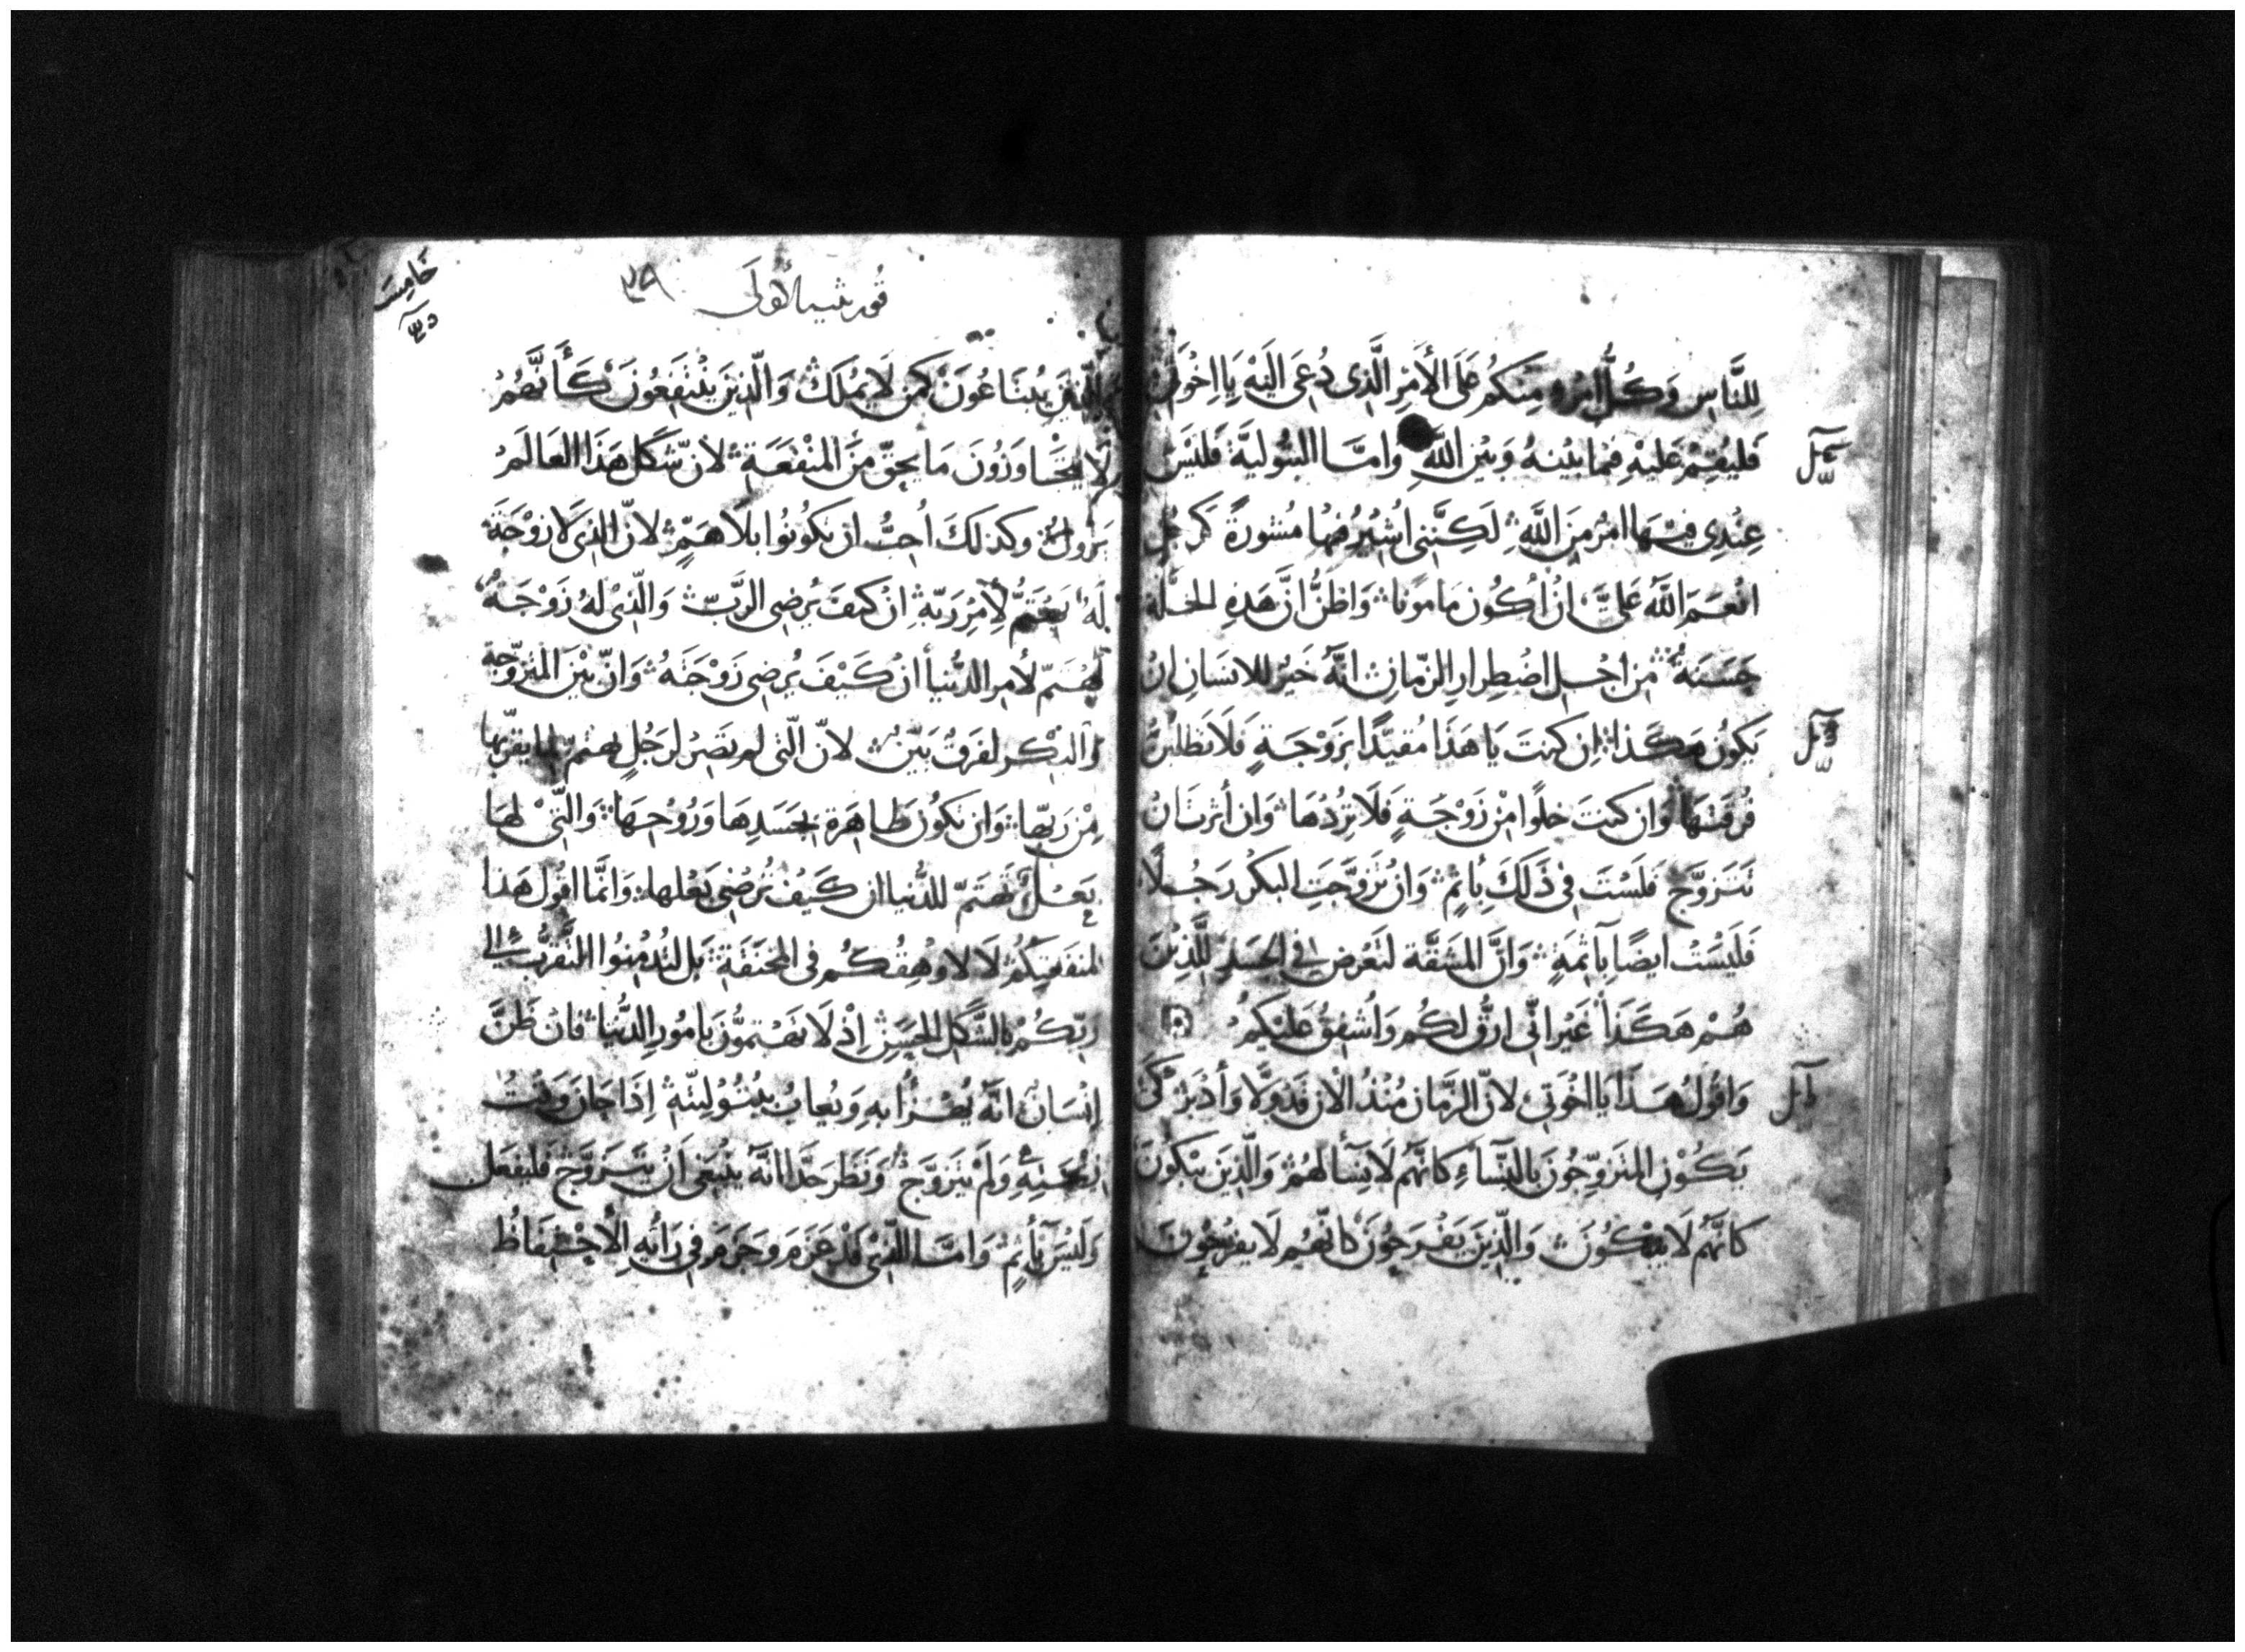 لِلنَّاسِ وَكُلُّ امْرِءٍ مِنكُم عَلَى الأَمْرِ الَّذِى دُعِىَ اليَهْ يَا اِخْوَتِى
فَليُقِمْ عَليْهِ فِيما بيْنهُ وَبيْن اللَّهِ وَامَّا البتُوليَّة فَليْسَ
عِنْدِى فيْهَا امْرٌ مِنَ اللَّهِ لَكِنَّنِى اُشِيْرُ فِيْهَا مَشُورَةً كَرَجُلٍ
انْعَمَ اللَّهُ عَلىَّ انْ اُكُون مَامونا وَاظنُّ انَّ هَذِهِ الخلَّة
حَسَنةٌ مِن اجْلِ اضْطِرارِ الزمّانِ انَّهُ خَيْرٌ للانسَانِ انْ
يَكونُ هَكَذا اِن كنتَ يَا هَذَا مُقيَّدًا بزَوْجَةٍ فَلَا تطْلُبَنَّ
فُرقَتهَا وَان كنتَ خلوًا مِنْ زَوْجَةٍ فَلَا تُرِدُهَا وَان أثرتَ انْ
تَتَزوَّج فَلَسْتَ فى ذَلكَ بِأثمٍ وَانْ تزَوَّجَتِ البكْر رَجُلًا
فَلَيْسْت ايضًا بآثمَةٍ وَانَّ المَشَقَّة لتَعْرض فى الجَسَدِ للَّذِيْنَ
هُمْ هَكَذَا غَيْرَ انِّى ارقُّ لكُم وَاُشفِقُ عَليْكُمْ
وَاقُولُ هَذَا يَا اخْوَتى لانّ الزَّمَان مُنْذُ الْان قَدْ وَلَّا وَأدْبَرَ كَىْ
يَكُوْن المتزَوِّجُونَ بالنِّسَآءِ كانَّهُم لَا نِسَآ لهُمْ وَالَّذِينَ يبْكونَ
كانَّهُم لَا يبْكُونَ وَالَّذِينَ يَفْرَحُونَ كَانَّهُم لَا يفْرَحُونَ
وَالَّذِينَ يُبْتَاعُونَ كَمَن لَا يَمْلكَ وَالَّذِينَ يَنْتَفِعُونَ كَأَنَّهُمْ
لَا يَتجَاوَزُونَ مَا يحِقّ مِنَ المنْفعَةِ لانّ شَكل هَذَا العَالَم
يَزُولُ وكَذلكَ اُحِبُّ ان تكُونُوا بلَا هَمٍّ لانّ الذِىْ لَا زوْجَةَ
لَهُ يَهْتَمُّ لأَمْرِ رَبّهِ انْ كيفَ يُرضِى الرَّبّ وَالّذِىْ لَهُ زَوْجَةٌ
يَهْتَمّ لأمرِ الدُّنيا انْ كَيْفَ يُرْضِى زَوْجَتهُ وَانّ بَيْن المتزوِّجة
وَالبكْر لفَرقٌ بَيِّنٌ لانّ الّتى لم تَصِرْ لرَجُلٍ تهتمّ لما يقرّبها
مِنْ رَبّها وَان تكُون طاهِرَة بجَسَدِهَا وَرُوْحِهَا وَالّتىْ لهَا
بَعْلٌ تَهتمّ للدُّنيا ان كَيْفَ تُرْضِى بَعْلها وَانَّمَا اقُول هَذا
لمنفَعَتِكُمْ لَا لاوْهِقكُم فى المخنَقَةِ بَل لتُدْمِنُوا التَّقرُّبَ الى
رَبّكُمْ بالشَّكلِ الحسَنِ اِذْ لَا تَهْتمّونَ بامُور الدُّنيا فانْ ظَنَّ
اِنْسَانٌ انَّهُ يُهْزَأُ بهِ وَيُعابُ ببُتُوْلِيّتهِ اِذَا حَانَ وَقْتُ
وَلَمْ يتَزوَّج وَنَظَرَ انَّهُ ينْبَغِى اَنْ يَتَزَوَّج فَليفعَل
وَلَيْسَ بأثمٍ وَامَّا الّذِىْ قَدْ عَزَم وجَزَم فى رَايهِ الاحْتِفَاظ